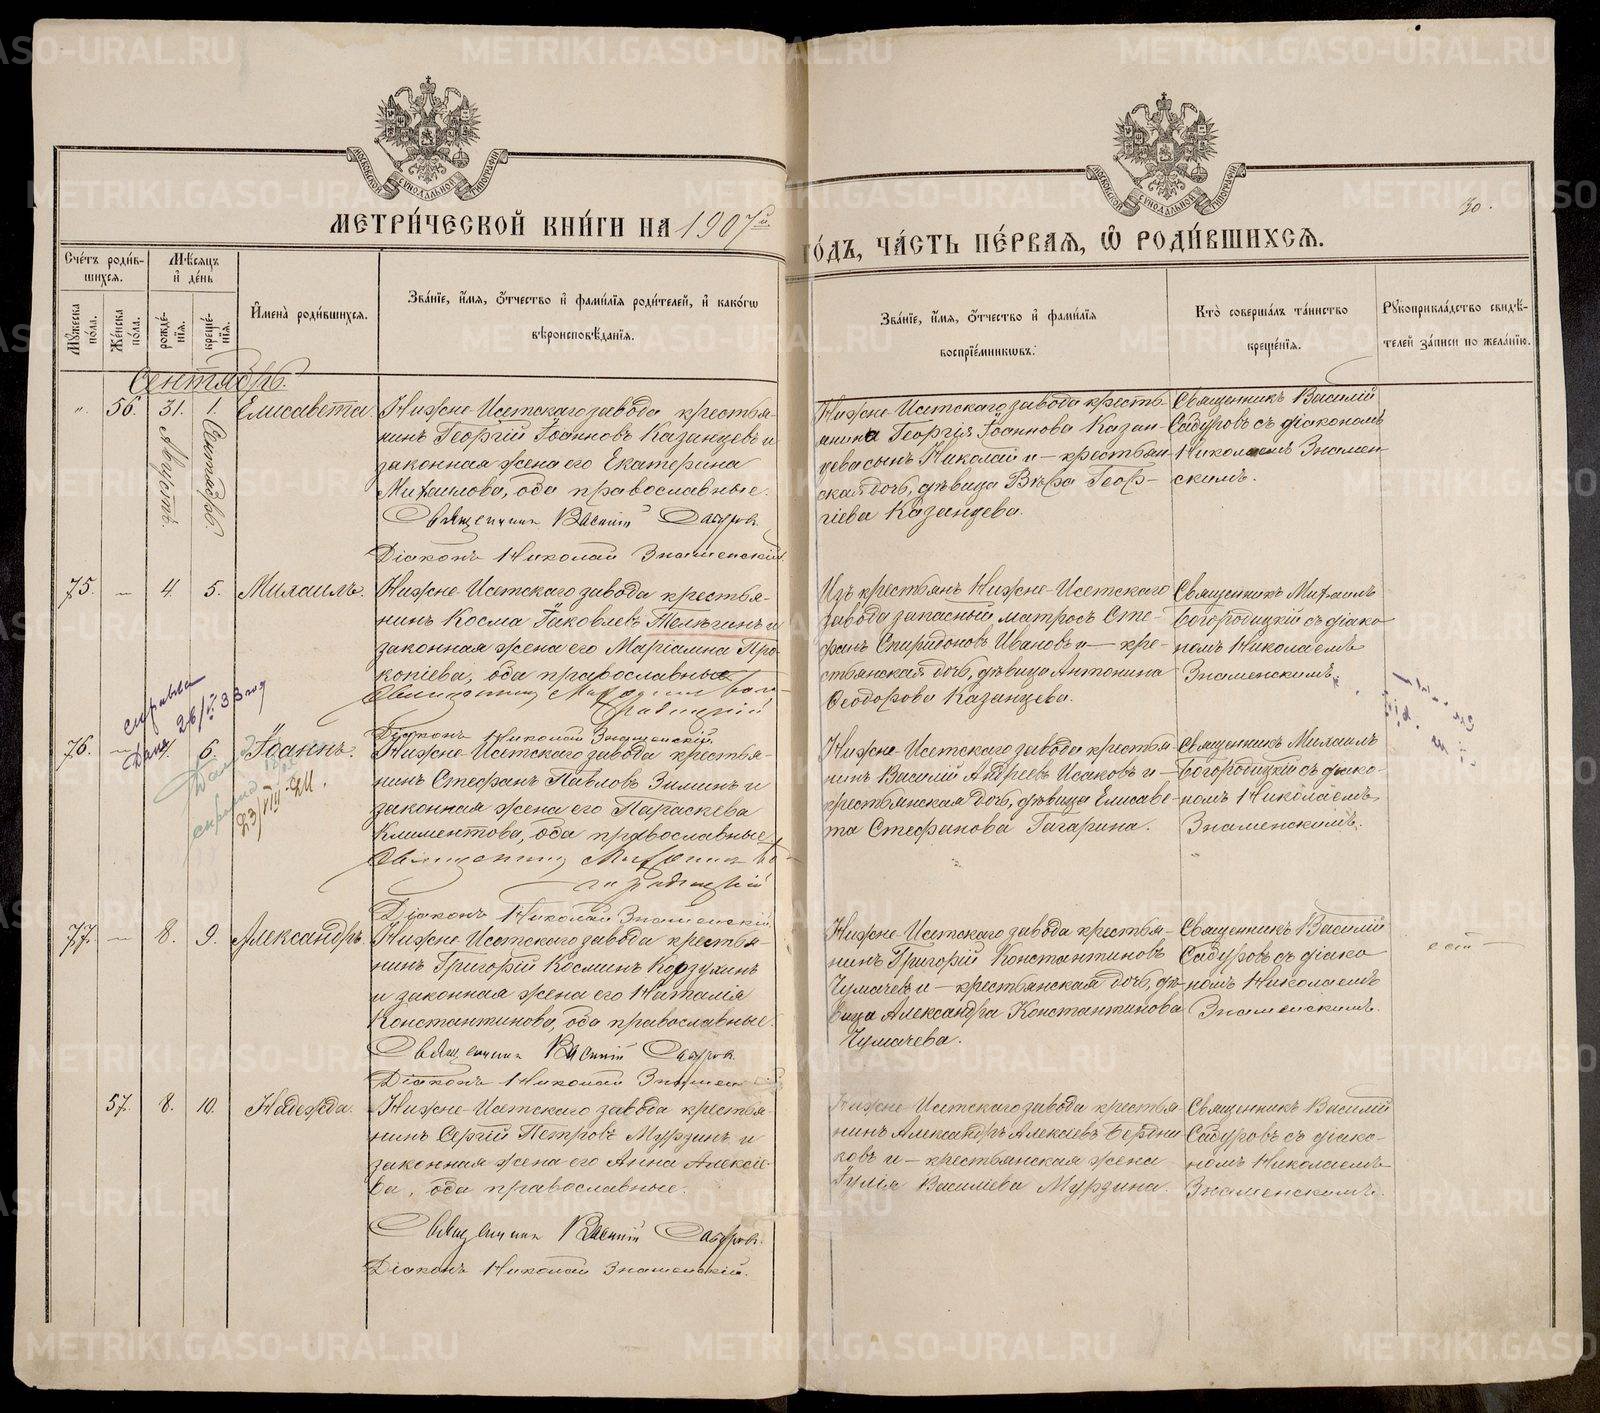 МЕТРИ́ЧЕСКОЙ КНИ́ГИ НА 1907й
ГО́ДЪ, ЧА́СТЬ ПЕ́РВАЯ, Ѽ РОДИ́ВШИХСЯ.
30.
Сче́тъ роди́в-
шихся.
Мѣ́сяцъ
и҆ де́нь
Мꙋ́жеска по́ла.
Же́нска по́ла.
рожде́-
нїя.
креще́-
нїя.
И҆мена̀ роди́вшихся.
Зва́нїе, и҆́мя, ѻ҆́тчество и҆ фами́лїя роди́телей, и҆ како́гѡ
вѣроисповѣ́данїя.
Зва́нїе, и҆́мя, ѻ҆́тчество и҆ фами́лїя
воспрїе́мникѡвъ.
Кто̀ соверша́лъ та́инство
креще́нїя.
Рꙋкоприкла́дство свидѣ́-
телей за́писи по жела́нїю.
Сентябрь.
". 56. 31. 1. Елисавета.
Августъ.
Сентябрь.
Нижне-Исетскаго завода крестья-
нинъ Георгій Іоанновъ Казанцевъ и
законная жена его Екатерина
Михаилова, оба православные.
Священникъ Василій Садуровъ
Діаконъ Николай Знаменскій
Нижне-Исетскаго завода кресть-
янина Георгія Іоаннова Казан-
цева сынъ Николай и – крестьян-
ская дочь, дѣвица Вѣра Геор-
гіева Казанцева.
Священникъ Василій
Садуровъ съ діакономъ
Николаемъ Знамен-
скимъ.
75. – 4. 5. Михаилъ.
Нижне-Исетскаго завода крестья-
нинъ Косма Іаковлевъ Телѣгинъ и
законная жена его Маріамна Про-
копіева, оба православные.
Священникъ Михаилъ Бого-
родицкій
Діаконъ Николай Знаменскій.
Изъ крестьянъ Нижне-Исетскаго
завода запасный матросъ Сте-
фанъ Спиридоновъ Ивановъ и – кре-
стьянская дочь, дѣвица Антонина
Ѳеодорова Казанцева.
Священникъ Михаилъ
Богородицкій съ діако-
номъ Николаемъ
Знаменскимъ.
справка
Дана 26/V 33 год
76. – 6. Іоаннъ.
23/VIII-41.
Нижне-Исетскаго завода крестья-
нинъ Стефанъ Павловъ Зиминъ и
законная жена его Параскева
Климентова, оба православные
Священникъ Михаилъ Бо-
городицкій
Діаконъ Николай Знаменскій
Нижне-Исетскаго завода крестья-
нинъ Василій Андреевъ Исаковъ и –
крестьянская дочь, дѣвица Елисаве-
та Стефанова Гагарина.
Священникъ Михаилъ
Богородицкій съ діако-
номъ Николаемъ
Знаменскимъ.
77. – 8. 9. Александръ.
Нижне-Исетскаго завода крестья-
нинъ Григорій Косминъ Корзухинъ
и законная жена его Наталія
Константинова, оба православные.
Священникъ Василій Садуровъ
Діаконъ Николай Знаменскій
Нижне-Исетскаго завода крестья-
нинъ Григорій Константиновъ
Чумачевъ и – крестьянская дочь, дѣ-
вица Александра Константинова
Чумачева.
Священникъ Василій
Садуровъ съ діако-
номъ Николаемъ
Знаменскимъ.
57. 8. 10. Надежда.
Нижне-Исетскаго завода крестья-
нинъ Сергій Петровъ Мурзинъ и
законная жена его Анна Алексіе-
ва, оба православные.
Священникъ Василій Садуровъ.
Діаконъ Николай Знаменскій.
Нижне-Исетскаго завода крестья-
нинъ Александръ Алексіевъ Бердни-
ковъ и – крестьянская жена
Іулія Василіева Мурзина.
Священникъ Василій
Садуровъ съ діако-
номъ Николаемъ
Знаменскимъ.
METRIKI.GASO-URAL.RU